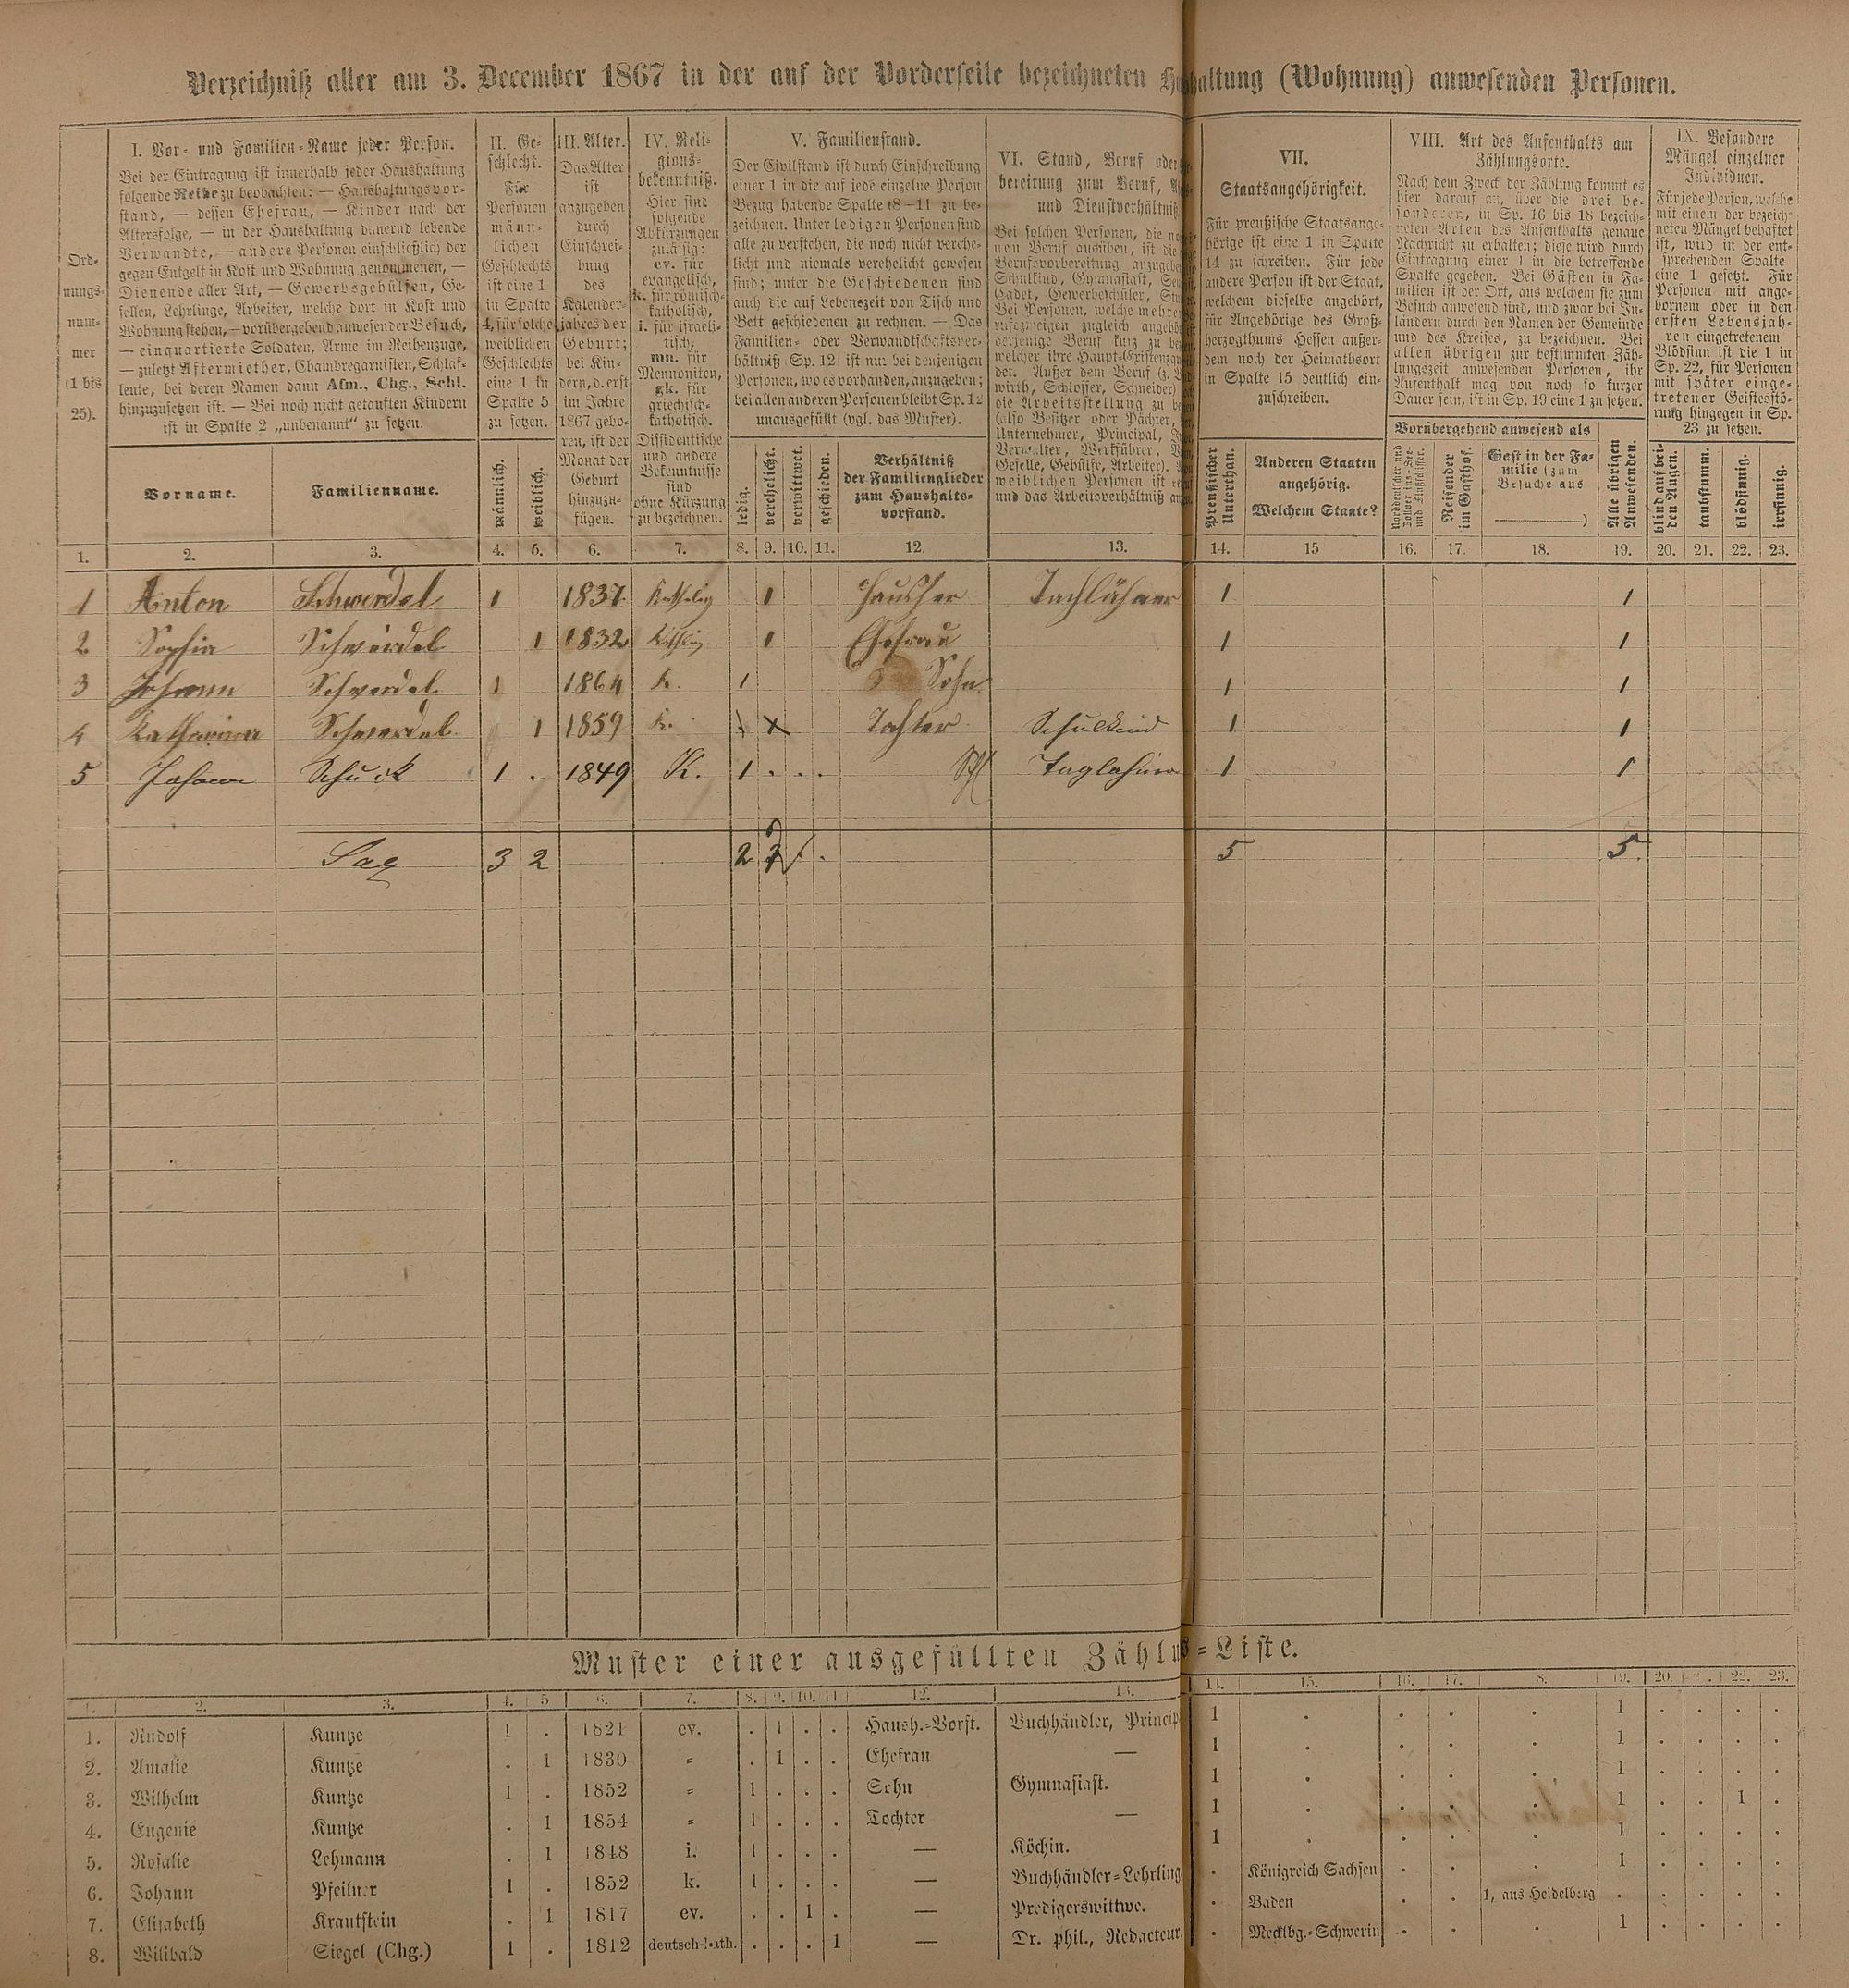 Verzeichniß aller am 3. December 1867 in der auf der Vorderseite bezeichneten haltung (Wohnung) anwesenden Personen.
Ord-
nungs-
num-
mer
(1 bis
25).
I. Vor- und Familien-Name jeder Person.
Bei der Eintragung ist innerhalb jeder Haushaltung
folgende Reihe zu beobachten: — Haushaltungsvor-
stand, — dessen Ehefrau, — Kinder nach der
Altersfolge, — in der Haushaltung dauernd lebende
Verwandte, — andere Personen einschließlich der
gegen Entgelt in Kost und Wohnung genommenen, —
Dienende aller Art, — Gewerbsgehülfen, Ge-
sellen, Lehrlinge, Arbeiter, welche dort in Kost und
Wohnung stehen, — vorübergehend anwesender Besuch,
— einquartierte Soldaten, Arme im Reihenzuge,
— zuletzt Aftermiether, Chambregarnisten, Schlaf-
leute, bei deren Namen dann Afm., Chg., Schl.
hinzuzusetzen ist. — Bei noch nicht getauften Kindern
ist in Spalte 2 „unbenannt" zu setzen.
Vorname.
Familienname.
II. Ge-
schlecht.
Für
Personen
männ-
lichen
Geschlechts
ist eine 1
in Spalte
4, für solche
weiblichen
Geschlechts
eine 1 in
Spalte 5
zu setzen.
männlich.
weiblich.
III. Alter.
Das Alter
ist
anzugeben
durch
Einschrei-
bung
des
Kalender-
jahres der
Geburt;
bei Kin-
dern, d. erst
im Jahre
1867 gebo-
ren, ist der
Monat der
Geburt
hinzuzu-
fügen.
IV. Reli-
gions-
bekenntniß.
Hier sind
folgende
Abkürzungen
zulässig:
ev. für
evangelisch,
k. für römisch-
katholisch,
i. für israeli-
tisch,
mn. für
Mennoniten,
gk. für
griechisch-
katholisch.
Dissidentische
und andere
Bekenntnisse
sind
ohne Kürzung
zu bezeichnen.
V. Familienstand.
Der Civilstand ist durch Einschreibung
einer 1 in die auf jede einzelne Person
Bezug habende Spalte (8–11) zu be-
zeichnen. Unter ledigen Personen sind
alle zu verstehen, die noch nicht verehe-
licht und niemals verehelicht gewesen
sind; unter die Geschiedenen sind
auch die auf Lebenszeit von Tisch und
Bett geschiedenen zu rechnen. — Das
Familien- oder Verwandtschaftsver-
hältniß (Sp. 12) ist nur bei denjenigen
Personen, wo es vorhanden, anzugeben;
bei allen anderen Personen bleibt Sp. 12
unausgefüllt (vgl. das Muster).
ledig.
verehelicht.
verwittwet.
geschieden.
Verhältniß
der Familienglieder
zum Haushalts-
vorstand.
VI. Stand, Beruf oder
bereitung zum Beruf,
und Dienstverhältniß
Bei solchen Personen, die
nen Beruf ausüben, ist die
Berufsvorbereitung
Schulkind, Gymnasiast,
Cadet, Gewerbeschüler,
Bei Personen, welche mehrere
zugleich
derjenige Beruf kurz zu
welcher ihre
det. Außer dem Beruf (z.
wirth, Schlosser, Schneider)
die Arbeitsstellung zu
(also Besitzer oder Pächter,
Unternehmer, Principal,
Verwalter, Werkführer,
Geselle, Gehülfe, Arbeiter).
weiblichen Personen ist
und das Arbeitsverhältniß
VII.
Staatsangehörigkeit.
Für preußische Staatsange-
hörige ist eine 1 in Spalte
14 zu schreiben. Für jede
andere Person ist der Staat,
welchem dieselbe angehört,
für Angehörige des Groß-
herzogthums Hessen außer-
dem noch der Heimathsort
in Spalte 15 deutlich ein-
zuschreiben.
Preußischer
Unterthan.
Anderen Staaten
angehörig.
Welchem Staate?
VIII. Art des Aufenthalts am
Zählungsorte.
Nach dem Zweck der Zählung kommt es
hier darauf an, über die drei be-
sonderen, in Sp. 16 bis 18 bezeich-
neten Arten des Aufenthalts genaue
Nachricht zu erhalten; diese wird durch
Eintragung einer 1 in die betreffende
Spalte gegeben. Bei Gästen in Fa-
milien ist der Ort, aus welchem sie zum
Besuch anwesend sind, und zwar bei In-
ländern durch den Namen der Gemeinde
und des Kreises, zu bezeichnen. Bei
allen übrigen zur bestimmten Zäh-
lungszeit anwesenden Personen, ihr
Aufenthalt mag von noch so kurzer
Dauer sein, ist in Sp. 19 eine 1 zu setzen.
Vorübergehend anwesend als
Reisender
im Gasthof.
Gast in der Fa-
milie (zum
Besuche aus
)
Alle übrigen
Anwesenden.
IX. Besondere
Mängel einzelner
Individuen.
Für jede Person, welche
mit einem der bezeich-
neten Mängel behaftet
ist, wird in der ent-
sprechenden Spalte
eine 1 gesetzt. Für
Personen mit ange-
bornem oder in den
ersten Lebensjah-
ren eingetretenem
Blödsinn ist die 1 in
Sp. 22, für Personen
mit später einge-
tretener Geistesstö-
rung hingegen in Sp.
23 zu setzen.
blind auf bei-
den Augen.
taubstumm.
blödsinnig.
irrsinnig.
1. 2. 3. 4. 5. 6. 7. 8. 9. 10. 11. 12. 13. 14. 15 16. 17. 18. 19. 20. 21. 22. 23.
1 Anton Schwerdel 1 1837 Katholig 1 Tachlöhner 1 1
2 Sophia Schwerdel 1 1832 1 Ehefrau 1 1
3 Johann Schwerdel 1 1864 K. 1 Sohn 1 1
4 Katharina Schwerdel 1 1859 K. 1 Tochter Schulkind 1 1
5 Johann Schuck 1 . 1849 K. 1 . . . Taglöhner 1 1
3 2 2 5 5.
Muster einer ausgefüllten Zähl-Liste.
1. 2. 3. 4. 5 6. 7. 8. 9. 10. 11 12. 13. 14. 15. 16. 17. 8. 19. 20. 22. 23.
1. Rudolf Kuntze 1 . 1821 ev. . 1 . . Haush.-Vorst. Buchhändler, Princip 1 . . . . 1 . . . .
2. Amalie Kuntze . 1 1830 „ . 1 . . Ehefrau — 1 . . . . 1 . . . .
3. Wilhelm Kuntze 1 . 1852 „ 1 . . . Sohn Gymnasiast. 1 . . . . 1 . . . .
4. Eugenie Kuntze . 1 1854 „ 1 . . . Tochter — 1 . . . . 1 . . 1 .
5. Rosalie Lehmann . 1 1848 i. 1 . . . — Köchin. 1 . . . . 1 . . . .
6. Johann Pfeilner 1 . 1852 k. 1 . . . — Buchhändler-Lehrling. . Königreich Sachsen . . . 1 . . . .
7. Elisabeth Krautstein . 1 1817 ev. . . 1 . — Predigerswittwe. . Baden . . 1, aus Heidelberg . . . . .
8. Wilibald Siegel (Chg.) 1 . 1812 deutsch-kath. . . . 1 — Dr. phil., Redacteur. . Mecklbg.-Schwerin . . . 1 . . . .